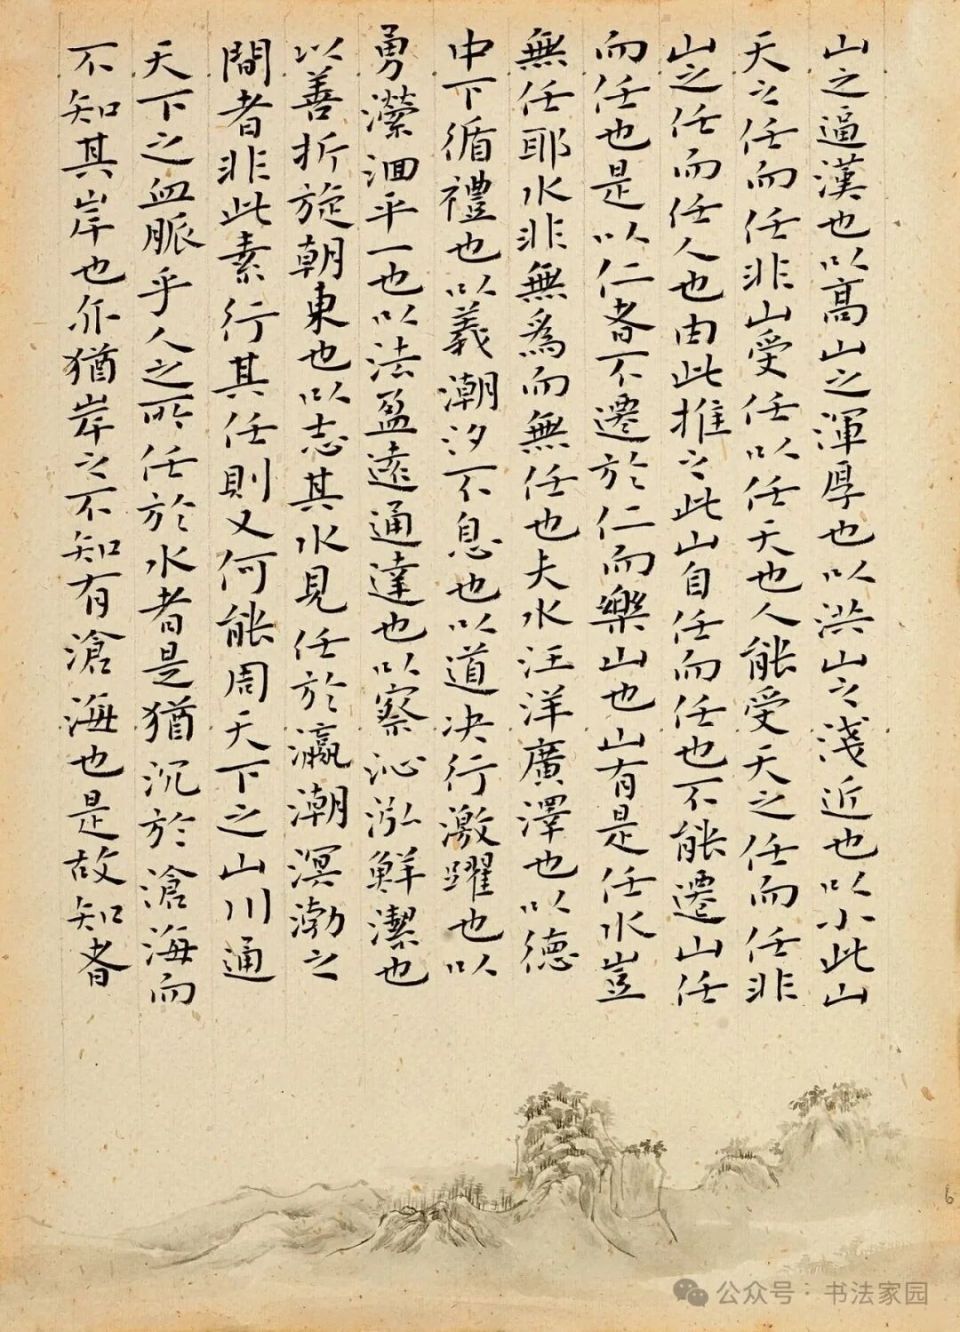 山之逼漢也以高山之渾厚也以洪山之淺近也以小此山
天之任而任非山受任以任天也人能受天之任而任非
山之任而任人也由此推之此山自任而任也不能遷山任
而任也是以仁者不遷於仁而樂山也山有是任水豈
無任耶水非無為而無任也夫水汪洋廣澤也以德
中下循禮也以義潮汐不息也以道决行激躍也以
勇瀠洄平一也以法盈遠通達也以察沁泓鮮潔也
以善折旋朝東也以志其水見任於瀛潮溟渤之
間者非此素行其任則又何能周天下之山川通
天下之血脈乎人之所任於水者是猶沉於滄海而
不知其岸也亦猶岸之不知有滄海也是故知者
6
公众号：书法家园